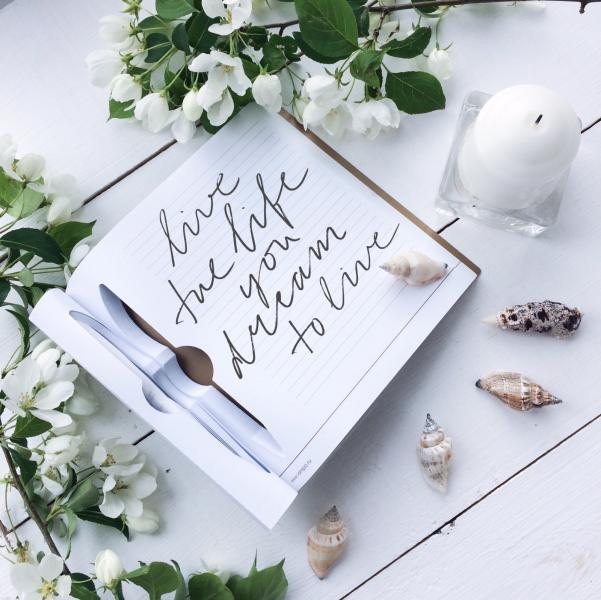 live
the life
you
dream
to live